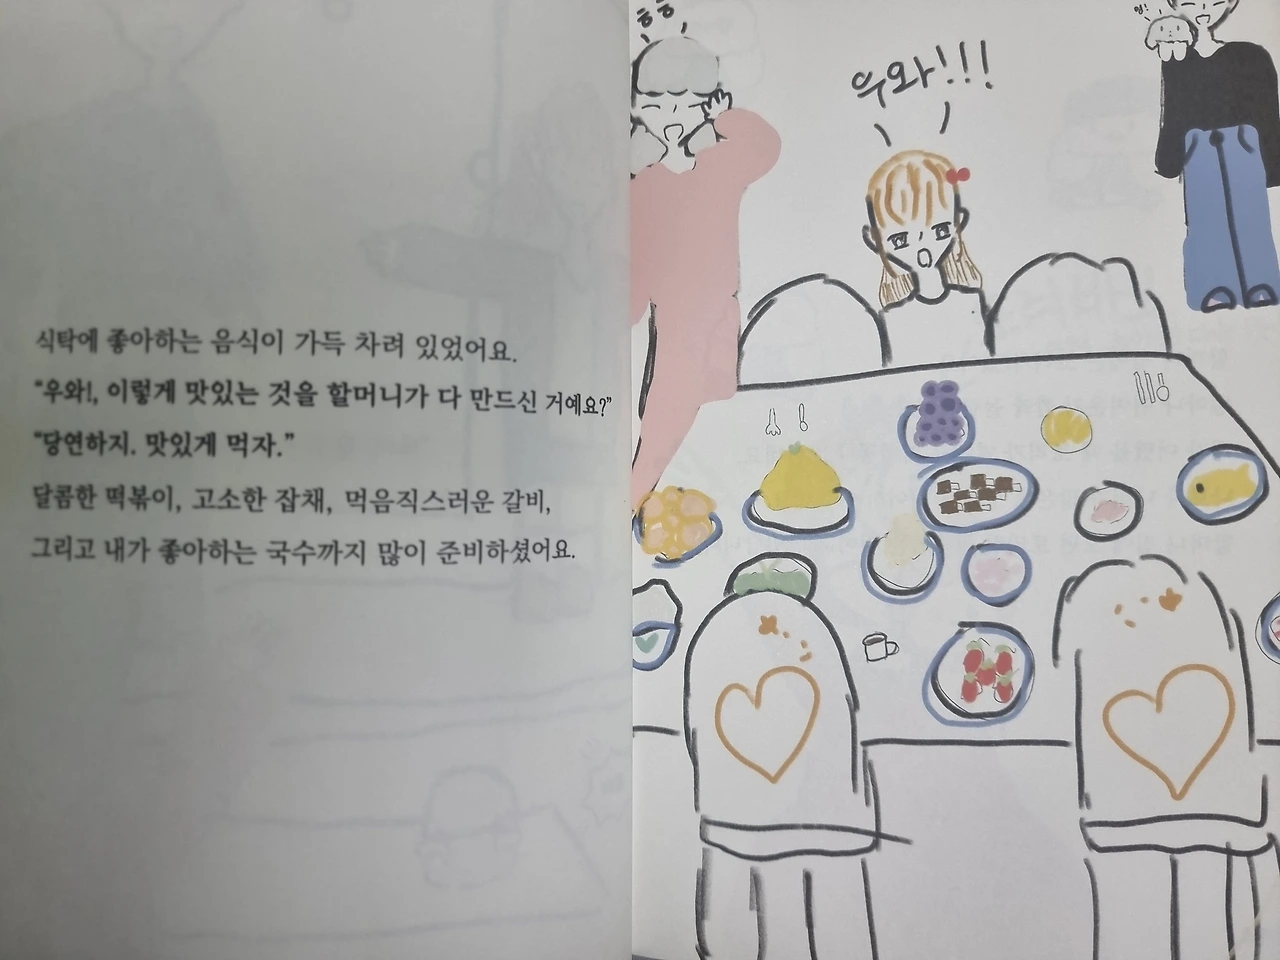 식탁에 좋아하는 음식이 가득 차려 있었어요.
“우와!, 이렇게 맛있는 것을 할머니가 다 만드신 거예요?”
“당연하지. 맛있게 먹자.”
달콤한 떡볶이, 고소한 잡채, 먹음직스러운 갈비,
그리고 내가 좋아하는 국수까지 많이 준비하셨어요.
흐흐
우와!!!
멍!